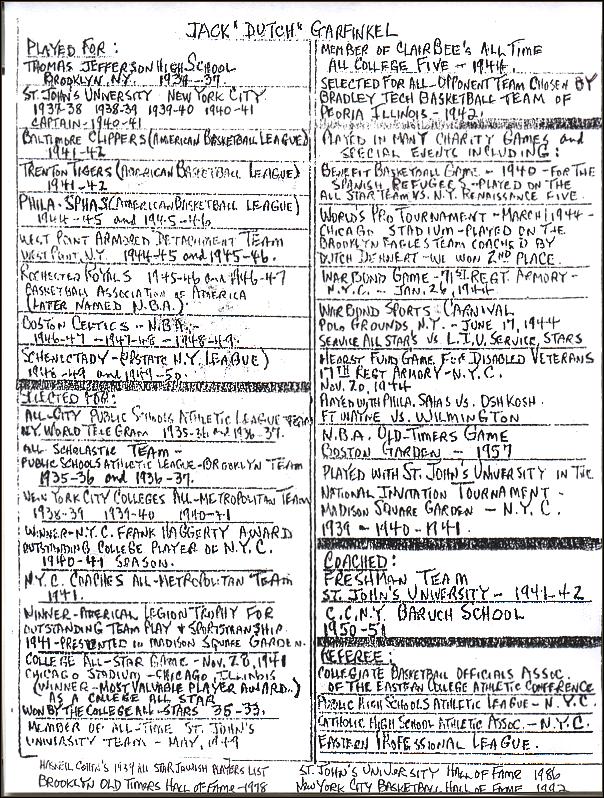 JACK "DUTCH" GARFINKEL
PLAYED FOR:
THOMAS JEFFERSON HIGH SCHOOL
BROOKLYN, N.Y. 1934-37.
ST. JOHN'S UNIVERSITY NEW YORK CITY
1937-38 1938-39 1939-40 1940-41
CAPTAIN-1940-41
BALTIMORE CLIPPERS (AMERICAN BASKETBALL LEAGUE)
1941-42
TRENTON TIGERS (AMERICAN BASKETBALL LEAGUE)
1941-42
PHILA. SPHAS (AMERICAN BASKETBALL LEAGUE)
1944-45 and 1945-46
WEST POINT ARMORED DETACHMENT TEAM
WEST POINT, N.Y. 1944-45 and 1945-46.
ROCHESTER ROYALS 1945-46 and 1946-47
BASKETBALL ASSOCIATION OF AMERICA
(LATER NAMED N.B.A.)
BOSTON CELTICS - N.B.A. -
1946-47 - 1947-48 - 1948-49.
SCHENECTADY - (UPSTATE N.Y. LEAGUE)
1948-49 and 1949-50.
SELECTED FOR:
ALL-CITY PUBLIC SCHOOLS ATHLETIC LEAGUE TEAM
N.Y. WORLD TELEGRAM 1935-36 and 1936-37.
ALL SCHOLASTIC TEAM -
PUBLIC SCHOOLS ATHLETIC LEAGUE-BROOKLYN TEAM
1935-36 and 1936-37.
NEW YORK CITY COLLEGES ALL-METROPOLITAN TEAM
1938-39 1939-40 1940-41
WINNER-N.Y.C. FRANK HAGGERTY AWARD
OUTSTANDING COLLEGE PLAYER OF N.Y.C.
1940-41 SEASON.
N.Y.C. COACHES ALL-METROPOLITAN TEAM
1941.
WINNER-AMERICAL LEGION TROPHY FOR
OUTSTANDING TEAM PLAY & SPORTSMANSHIP.
1941-PRESENTED IN MADISON SQUARE GARDEN.
COLLEGE ALL-STAR GAME - NOV. 28, 1941
CHICAGO STADIUM - CHICAGO, ILLINOIS
(WINNER - MOST VALUABLE PLAYER AWARD.)
AS A COLLEGE ALL STAR
WON BY THE COLLEGE ALL-STARS 35-33.
MEMBER OF ALL-TIME ST. JOHN'S
UNIVERSITY TEAM - MAY, 1949
MEMBER OF CLAIR BEE'S ALL TIME
ALL COLLEGE FIVE - 1944.
SELECTED FOR ALL-OPPONENT TEAM CHOSEN BY
BRADLEY TECH BASKETBALL TEAM OF
PEORIA ILLINOIS - 1942.
PLAYED IN MANY CHARITY GAMES and
SPECIAL EVENTS INCLUDING:
BENEFIT BASKETBALL GAME - 1940 - FOR THE
SPANISH REFUGEES - PLAYED ON THE
ALL STAR TEAM VS. N.Y. RENAISSANCE FIVE.
WORLDS PRO TOURNAMENT - MARCH, 1944 -
CHICAGO STADIUM - PLAYED ON THE
BROOKLYN EAGLES TEAM COACHED BY
DUTCH DEHNERT - WE WON 2ND PLACE.
WAR BOND GAME - 71ST REGT. ARMORY -
N.Y.C. - JAN. 26, 1944
WAR BOND SPORTS CARNIVAL
POLO GROUNDS, N.Y. - JUNE 17, 1944
SERVICE ALL STARS VS L.I.U. SERVICE STARS
HEARST FUND GAME FOR DISABLED VETERANS
17TH REGT ARMORY - N.Y.C.
NOV. 20, 1944
PLAYED WITH PHILA. SPHAS VS. OSHKOSH
FT WAYNE VS. WILMINGTON
N.B.A. OLD-TIMERS GAME
BOSTON GARDEN - 1957
PLAYED WITH ST. JOHN'S UNIVERSITY IN THE
NATIONAL INVITATION TOURNAMENT -
MADISON SQUARE GARDEN - N.Y.C.
1939 - 1940 - 1941.
COACHED:
FRESHMAN TEAM
ST. JOHN'S UNIVERSITY - 1941-42
C.C.N.Y. BARUCH SCHOOL
1950-51
REFEREE:
COLLEGIATE BASKETBALL OFFICIALS ASSOC.
OF THE EASTERN COLLEGE ATHLETIC CONFERENCE
PUBLIC HIGH SCHOOLS ATHLETIC LEAGUE - N.Y.C.
CATHOLIC HIGH SCHOOL ATHLETIC ASSOC. - N.Y.C.
EASTERN PROFESSIONAL LEAGUE.
HASKELL COHEN'S 1939 ALL STAR JEWISH PLAYERS LIST
BROOKLYN OLD TIMERS HALL OF FAME-1978
ST. JOHN'S UNIVERSITY HALL OF FAME 1986
NEW YORK CITY BASKETBALL HALL OF FAME 1992